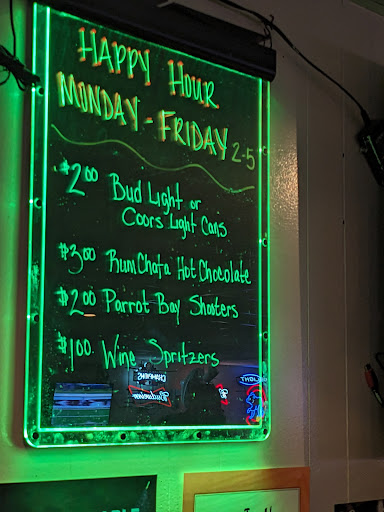 HAPPY HOUR
MONDAY - FRIDAY 2-5
$2.00 Bud Light or
Coors Light Cans
$3.00 RumChata Hot Chocolate
$2.00 Parrot Bay Shooters
$1.00 Wine Spritzers
CHAMPIONS
Budweiser